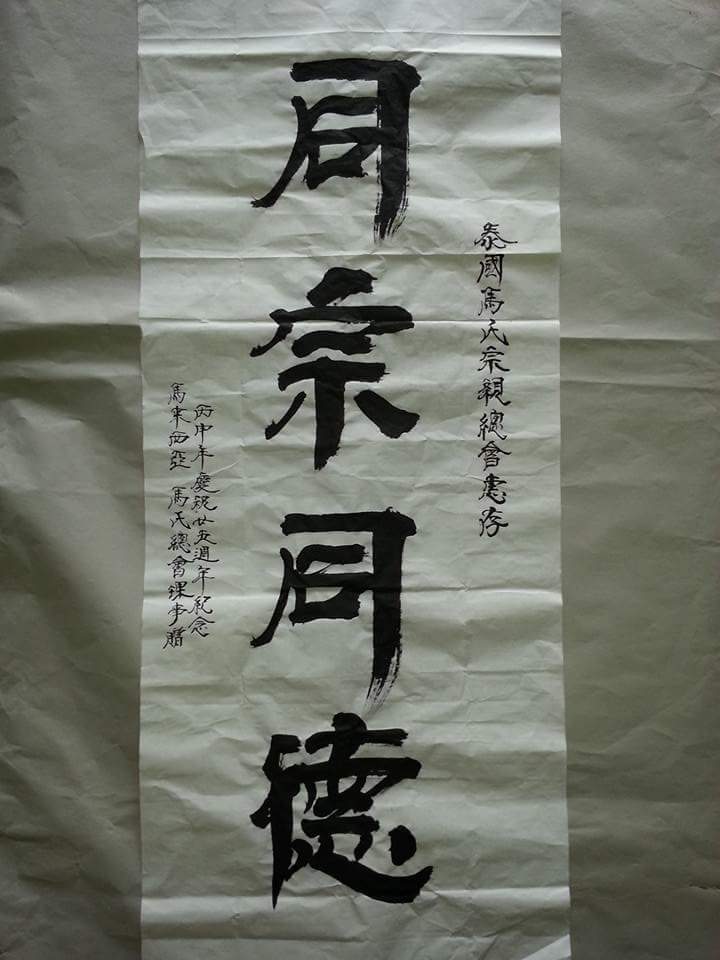 泰國馬氏宗親總會惠存
同宗同德
丙申年慶祝廿五週年紀念
馬來西亞 馬氏總會理事贈